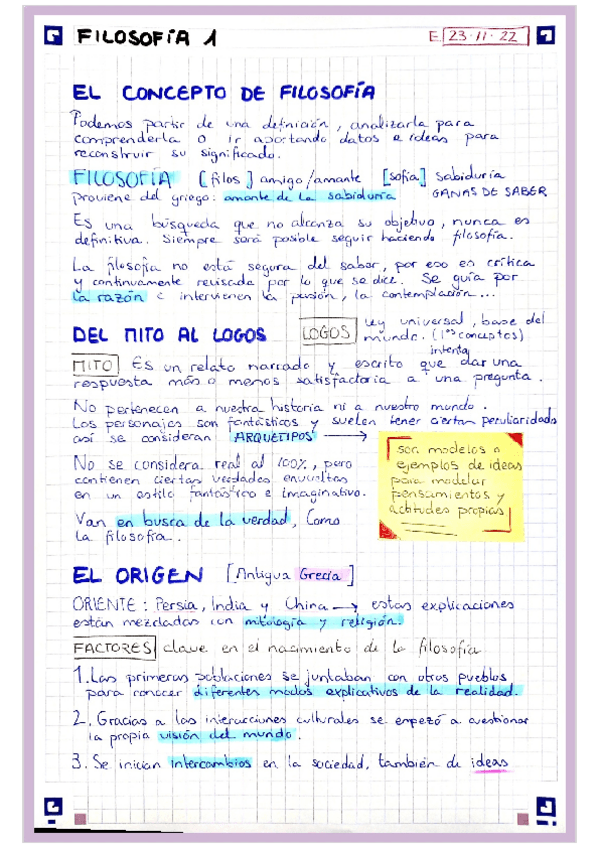 FILOSOFÍA 1
E. 23·11·22
EL CONCEPTO DE FILOSOFÍA
Podemos partir de una definición, analizarla para
comprenderla o ir aportando datos e ideas para
reconstruir su significado.
FILOSOFÍA [filos] amigo/amante [sofía] sabiduría
proviene del griego: amante de la sabiduría GANAS DE SABER
Es una búsqueda que no alcanza su objetivo, nunca es
definitiva. Siempre será posible seguir haciendo filosofía.
La filosofía no está segura del saber, por eso es crítica
y continuamente revisada por lo que se dice. Se guía por
la razón e intervienen la pasión, la contemplación...
DEL MITO AL LOGOS LOGOS Ley universal, base del
mundo. (1ºs conceptos)
MITO Es un relato narrado y escrito que intenta dar una
respuesta más o menos satisfactoria a una pregunta.
No pertenecen a nuestra historia ni a nuestro mundo.
Los personajes son fantásticos y suelen tener ciertas peculiaridades
así se consideran ARQUETIPOS →
son modelos o
ejemplos de ideas
para modelar
pensamientos y
actitudes propias
No se considera real al 100%, pero
contienen ciertas verdades envueltas
en un estilo fantástico e imaginativo.
Van en busca de la verdad, como
la filosofía.
EL ORIGEN [Antigua Grecia]
ORIENTE: Persia, India y China → estas explicaciones
están mezcladas con mitología y religión.
FACTORES clave en el nacimiento de la filosofía
1. Las primeras poblaciones se juntaban con otros pueblos
para conocer diferentes modos explicativos de la realidad.
2. Gracias a las interacciones culturales se empezó a cuestionar
la propia visión del mundo.
3. Se inician intercambios en la sociedad, también de ideas